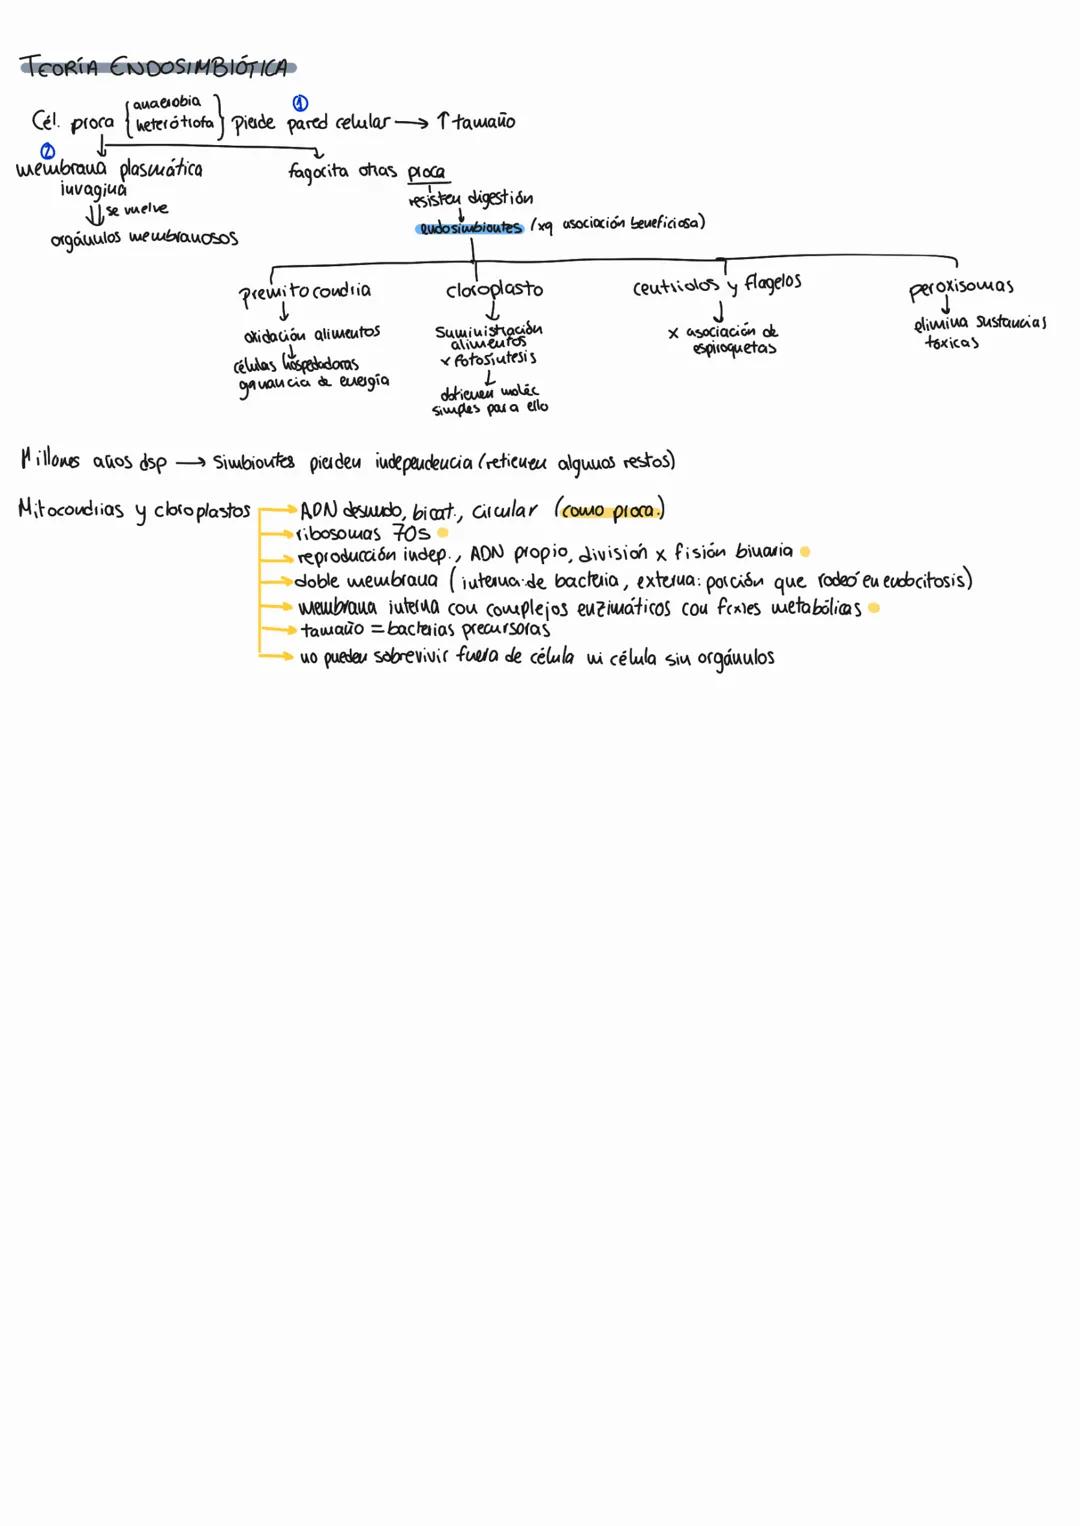 TEORÍA ENDOSIMBIÓTICA
anaerobia ①
Cél. proca { heterótrofa } pierde pared celular → ↑ tamaño
②
membrana plasmática fagocita otras proca
invagina resisten digestión
⇓ se vuelve
orgánulos membranosos endosimbiontes (xq asociación beneficiosa)
premitocondria cloroplasto centriolos y flagelos peroxisomas
oxidación alimentos suministración alimentos x asociación de elimina sustancias
células hospedadoras x fotosíntesis espiroquetas tóxicas
ganancia de energía obtienen moléc
simples para ello
Millones años dsp → simbiontes pierden independencia (retienen algunos restos)
Mitocondrias y cloroplastos → ADN desnudo, bicat., circular (como proca.)
→ ribosomas 70s
→ reproducción indep., ADN propio, división x fisión binaria
→ doble membrana (interna: de bacteria, externa: porción que rodeó en endocitosis)
→ membrana interna con complejos enzimáticos con fxnes metabólicas
→ tamaño = bacterias precursoras
→ no pueden sobrevivir fuera de célula ni célula sin orgánulos